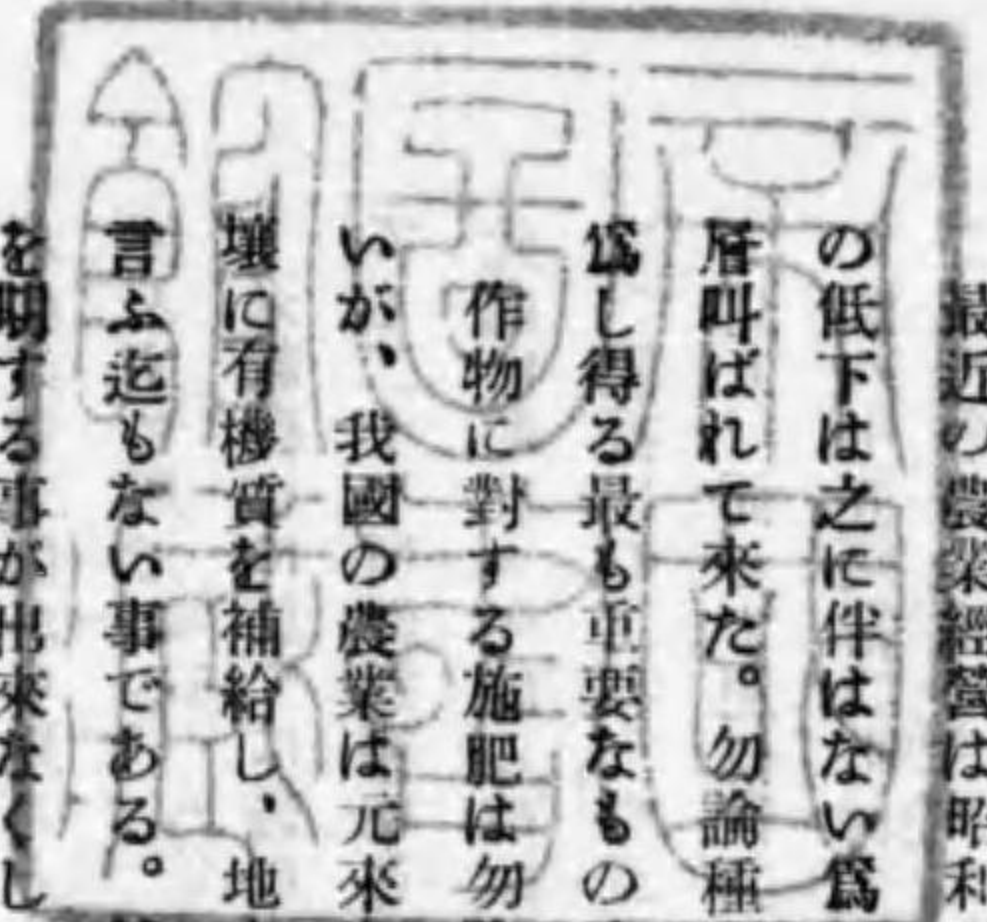 最近の農業經營は昭和
の低下は之に伴はない爲
層叫ばれて來た。勿論種
爲し得る最も重要なもの
作物に對する施肥は勿
いが、我國の農業は元來
壤に有機質を補給し、地
言ふ迄もない事である。
を期する事が出來なくし